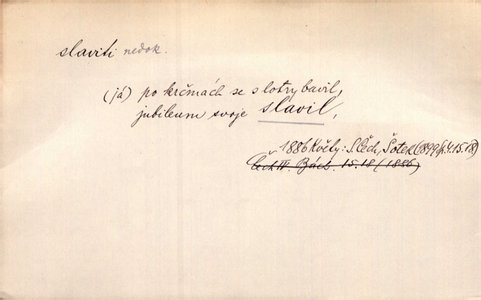 slaviti nedok.
(já) po krčmách se s lotry bavil,
jubileum svoje slavil,
1886 Květy: S. Čech, Šotek (1899)
Čech IV. 15.18 (1886)